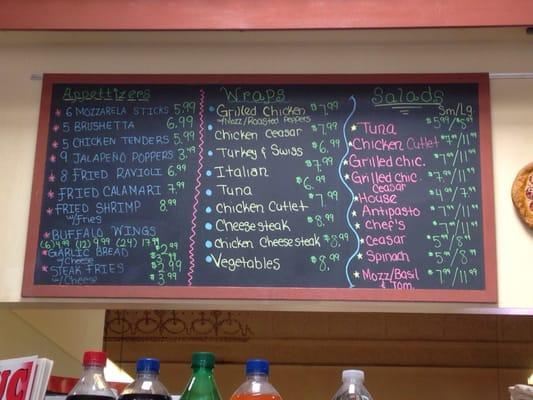 Appetizers
6 Mozzarela Sticks 5.99
5 Brushetta 6.99
5 Chicken Tenders 5.99
9 Jalapeño Poppers 3.99
8 Fried Ravioli 6.99
Fried Calamari 7.99
Fried Shrimp 8.99
w/Fries
Buffalo Wings
(6) 4.99 (12) 9.99 (24) 17.99
Garlic Bread $2.99
w/Cheese
Steak Fries $2.99
w/Cheese $3.99
Wraps
Grilled Chicken $7.99
+Mozz/Roasted Peppers
Chicken Ceasar $7.99
Turkey & Swiss $6.99
Italian $7.99
Tuna $6.99
Chicken Cutlet $7.99
Cheesesteak $8.99
Chicken Cheesesteak $8.99
Vegetables $8.99
Salads
Sm/Lg
Tuna
Chicken Cutlet $7.99/11.99
Grilled chic. $7.99/11.99
Grilled chic.
Ceasar
House
Antipasto $7.99/11.99
Chef's $7.99/11.99
Ceasar
Spinach
Mozz/Basil $7.99/11.99
& Tom.